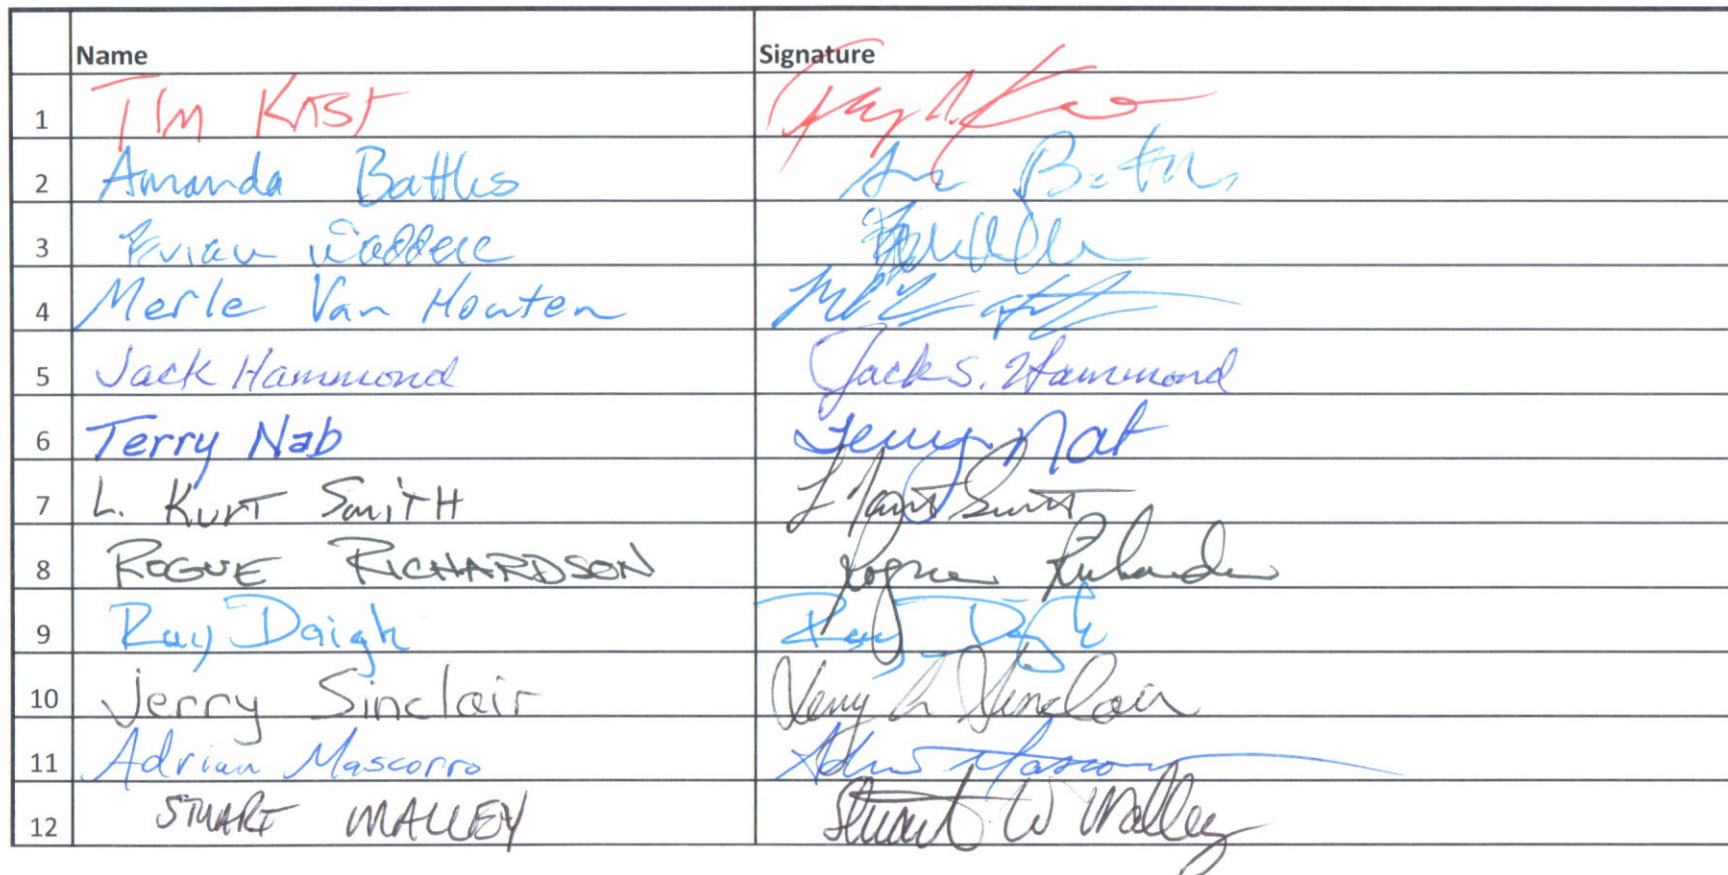 Name Signature
1 Tim Kast
2 Amanda Battles
3 Waddell
4 Merle Van Houten
5 Jack Hammond Jack S. Hammond
6 Terry Nab Terry Nab
7 L. Kurt Smith L Kurt Smith
8 ROGUE RICHARDSON Rogue Richardson
9 Ray Daigh Ray Daigh
10 Jerry Sinclair Jerry Sinclair
11 Adrian Mascorro Adrian Mascorro
12 STUART MALLEY Stuart W Malley